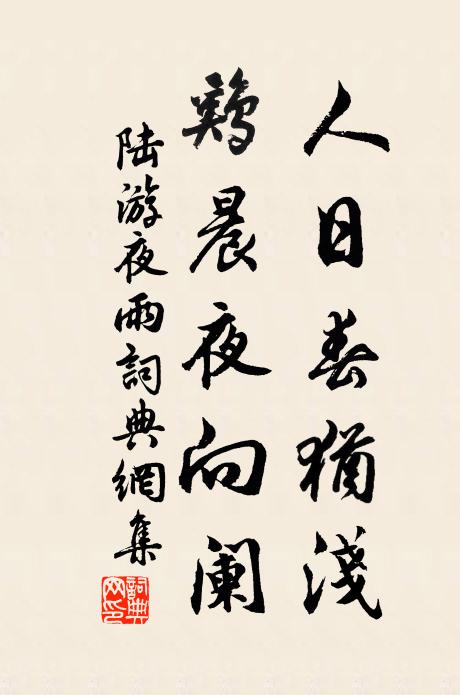 人日春猶淺
鷄晨夜向阑
陆游夜雨詞典網集
詞典网印